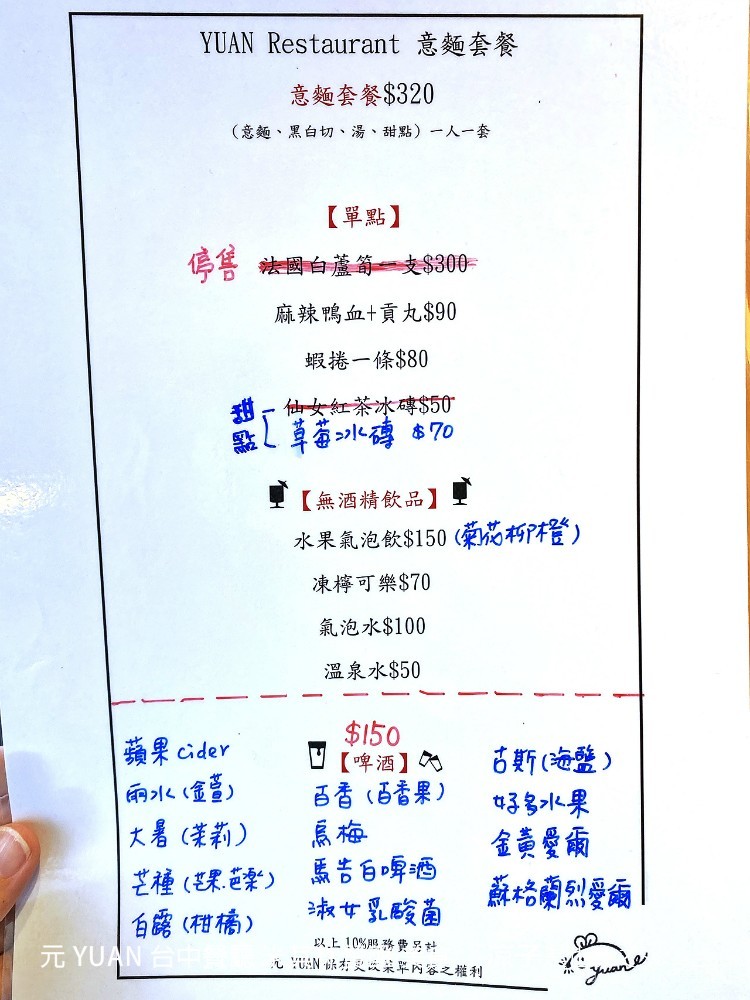 YUAN Restaurant 意麵套餐
意麵套餐$320
(意麵、黑白切、湯、甜點) 一人一套
【單點】
停售 法國白蘆筍一支$300
麻辣鴨血+貢丸$90
蝦捲一條$80
甜點 仙女紅茶冰磚$50
草莓冰磚 $70
【無酒精飲品】
水果氣泡飲$150 (菊花柳橙)
凍檸可樂$70
氣泡水$100
溫泉水$50
$150
【啤酒】
蘋果 cider
雨水 (金萱)
大暑 (茉莉)
芒種 (芒果.芭樂)
白露 (柑橘)
百香 (百香果)
烏梅
馬告白啤酒
淑女乳酸菌
古斯 (海鹽)
好多水果
金黃愛爾
蘇格蘭烈愛爾
以上 10%服務費另計
元 YUAN 保有更改菜單內容之權利
元 YUAN 台中
yuan